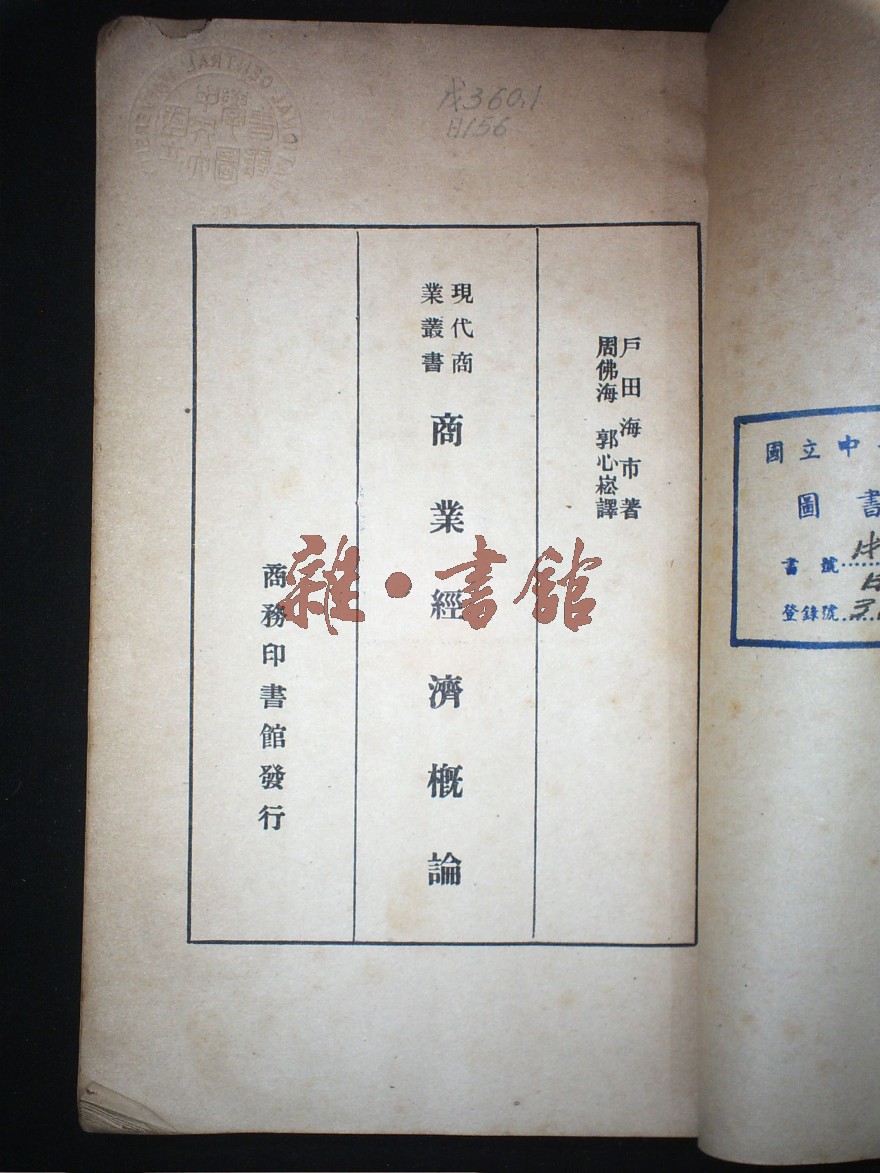 戊360.1
H156
戶田海市著
周佛海 郭心崧譯
現代商
業叢書
商業經濟概論
商務印書館發行
雜·書館
國立中
圖書
書號
登錄號